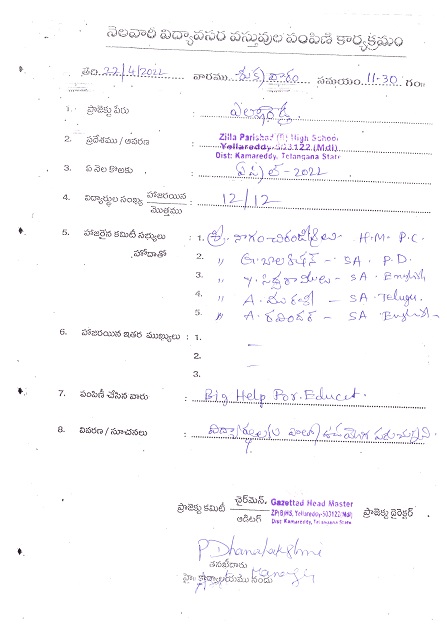 నెలవారి విద్యావసర వస్తువుల పంపిణీ కార్యక్రమం
తేది 22/4/2022 వారము శుక్రవారం సమయం 11-30 గం
1. ప్రాజెక్టు పేరు : ఎల్లారెడ్డి
2. ప్రదేశము / ఆవరణ : Zilla Parishad (B) High School
Yellareddy-503122 (Mdl)
Dist: Kamareddy, Telangana State
3. ఏ నెల కొఱకు : ఏప్రిల్-2022
4. విద్యార్థుల సంఖ్య హాజరయిన : 12/12
మొత్తము
5. హాజరైన కమిటీ సభ్యులు : 1. శ్రీ నాగం H.M. P.C.
హోదాతో 2. " - SA. P.D.
3. " Y. సిద్దరాములు - SA. English
4. " A. మురళి - SA. Telugu
5. " A. రవిందర్ - SA English
6. హాజరయిన ఇతర ముఖ్యులు : 1. —
2. —
3.
7. పంపిణీ చేసిన వారు : Big Help For Educat.
8. వివరణ / సూచనలు :
ప్రాజెక్టు కమిటీ చైర్‌మెన్. Gazetted Head Master ప్రాజెక్టు డైరెక్టర్
ఆడిటర్ ZP(B)HS. Yellareddy-503122(Mdl)
Dist: Kamareddy, Telangana State
P Dhanalakshmi
తనబీదారు
హై కార్యాలయము నందు Manager